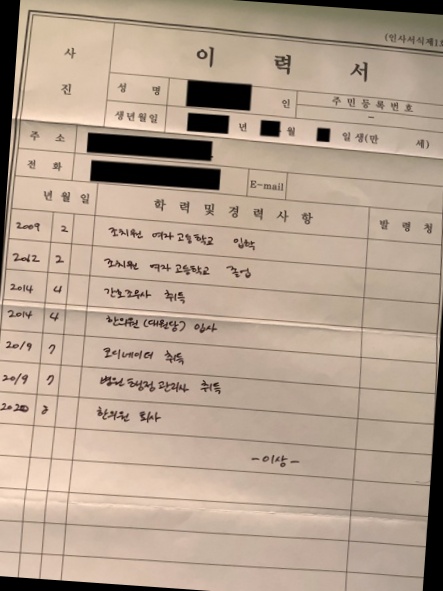 (인사서식제1
이 력 서
사 진
성 명 인 주 민 등 록 번 호
생년월일 년 월 일 생(만 세) -
주 소
전 화 E-mail
년 월 일 학 력 및 경 력 사 항 발 령 청
2009 2 조치원 여자 고등학교 입학
2012 2 조치원 여자 고등학교 졸업
2014 4 간호조무사 취득
2014 4 한의원 (대원당) 입사
2019 7 코디네이터 취득
2019 7 병원 행정 관리사 취득
2020 한의원 퇴사
- 이상 -